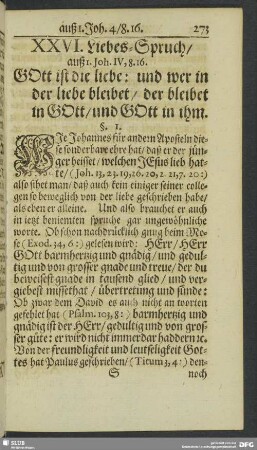 auß 1. Joh. 4/8. 16. 273
XXVI. Liebes-Spruch/
auß 1. Joh. IV, 8. 16.
GOtt ist die liebe: und wer in
der liebe bleibet/ der bleibet
in GOtt/ und GOtt in ihm.
§. 1.
WIe Johannes für andern Aposteln die-
se sonderbare ehre hat/ daß er der jün-
ger heisset/ welchen JEsus lieb hat-
te/ (Joh. 13, 23. 19, 26. 20, 2. 21, 7. 20:)
also sihet man/ daß auch kein einiger seiner colle-
gen so beweglich von der liebe geschrieben habe/
als eben er alleine. Und also brauchet er auch
in jetzt benienten spruche gar ungewöhnliche
worte. Ob schon nachdrücklich gnug beim Mo-
se (Exod. 34, 6:) gelesen wird: HErr/ HErr
GOtt barmhertzig und gnädig/ und gedul-
tig und von grosser gnade und treue/ der du
beweisest gnade in tausend glied/ und ver-
giebest missethat/ übertretung und sünde:
Ob zwar dem David es auch nicht an worten
gefehlet hat (Psalm. 103, 8:) barmhertzig und
gnädig ist der HErr/ gedultig und von gros-
ser güte: er wird nicht immerdar haddern ꝛc.
Von der freundligkeit und leutseligkeit Got-
tes hat Paulus geschrieben/ (Titum 3, 4:) den-
S noch
SLUB
DFG